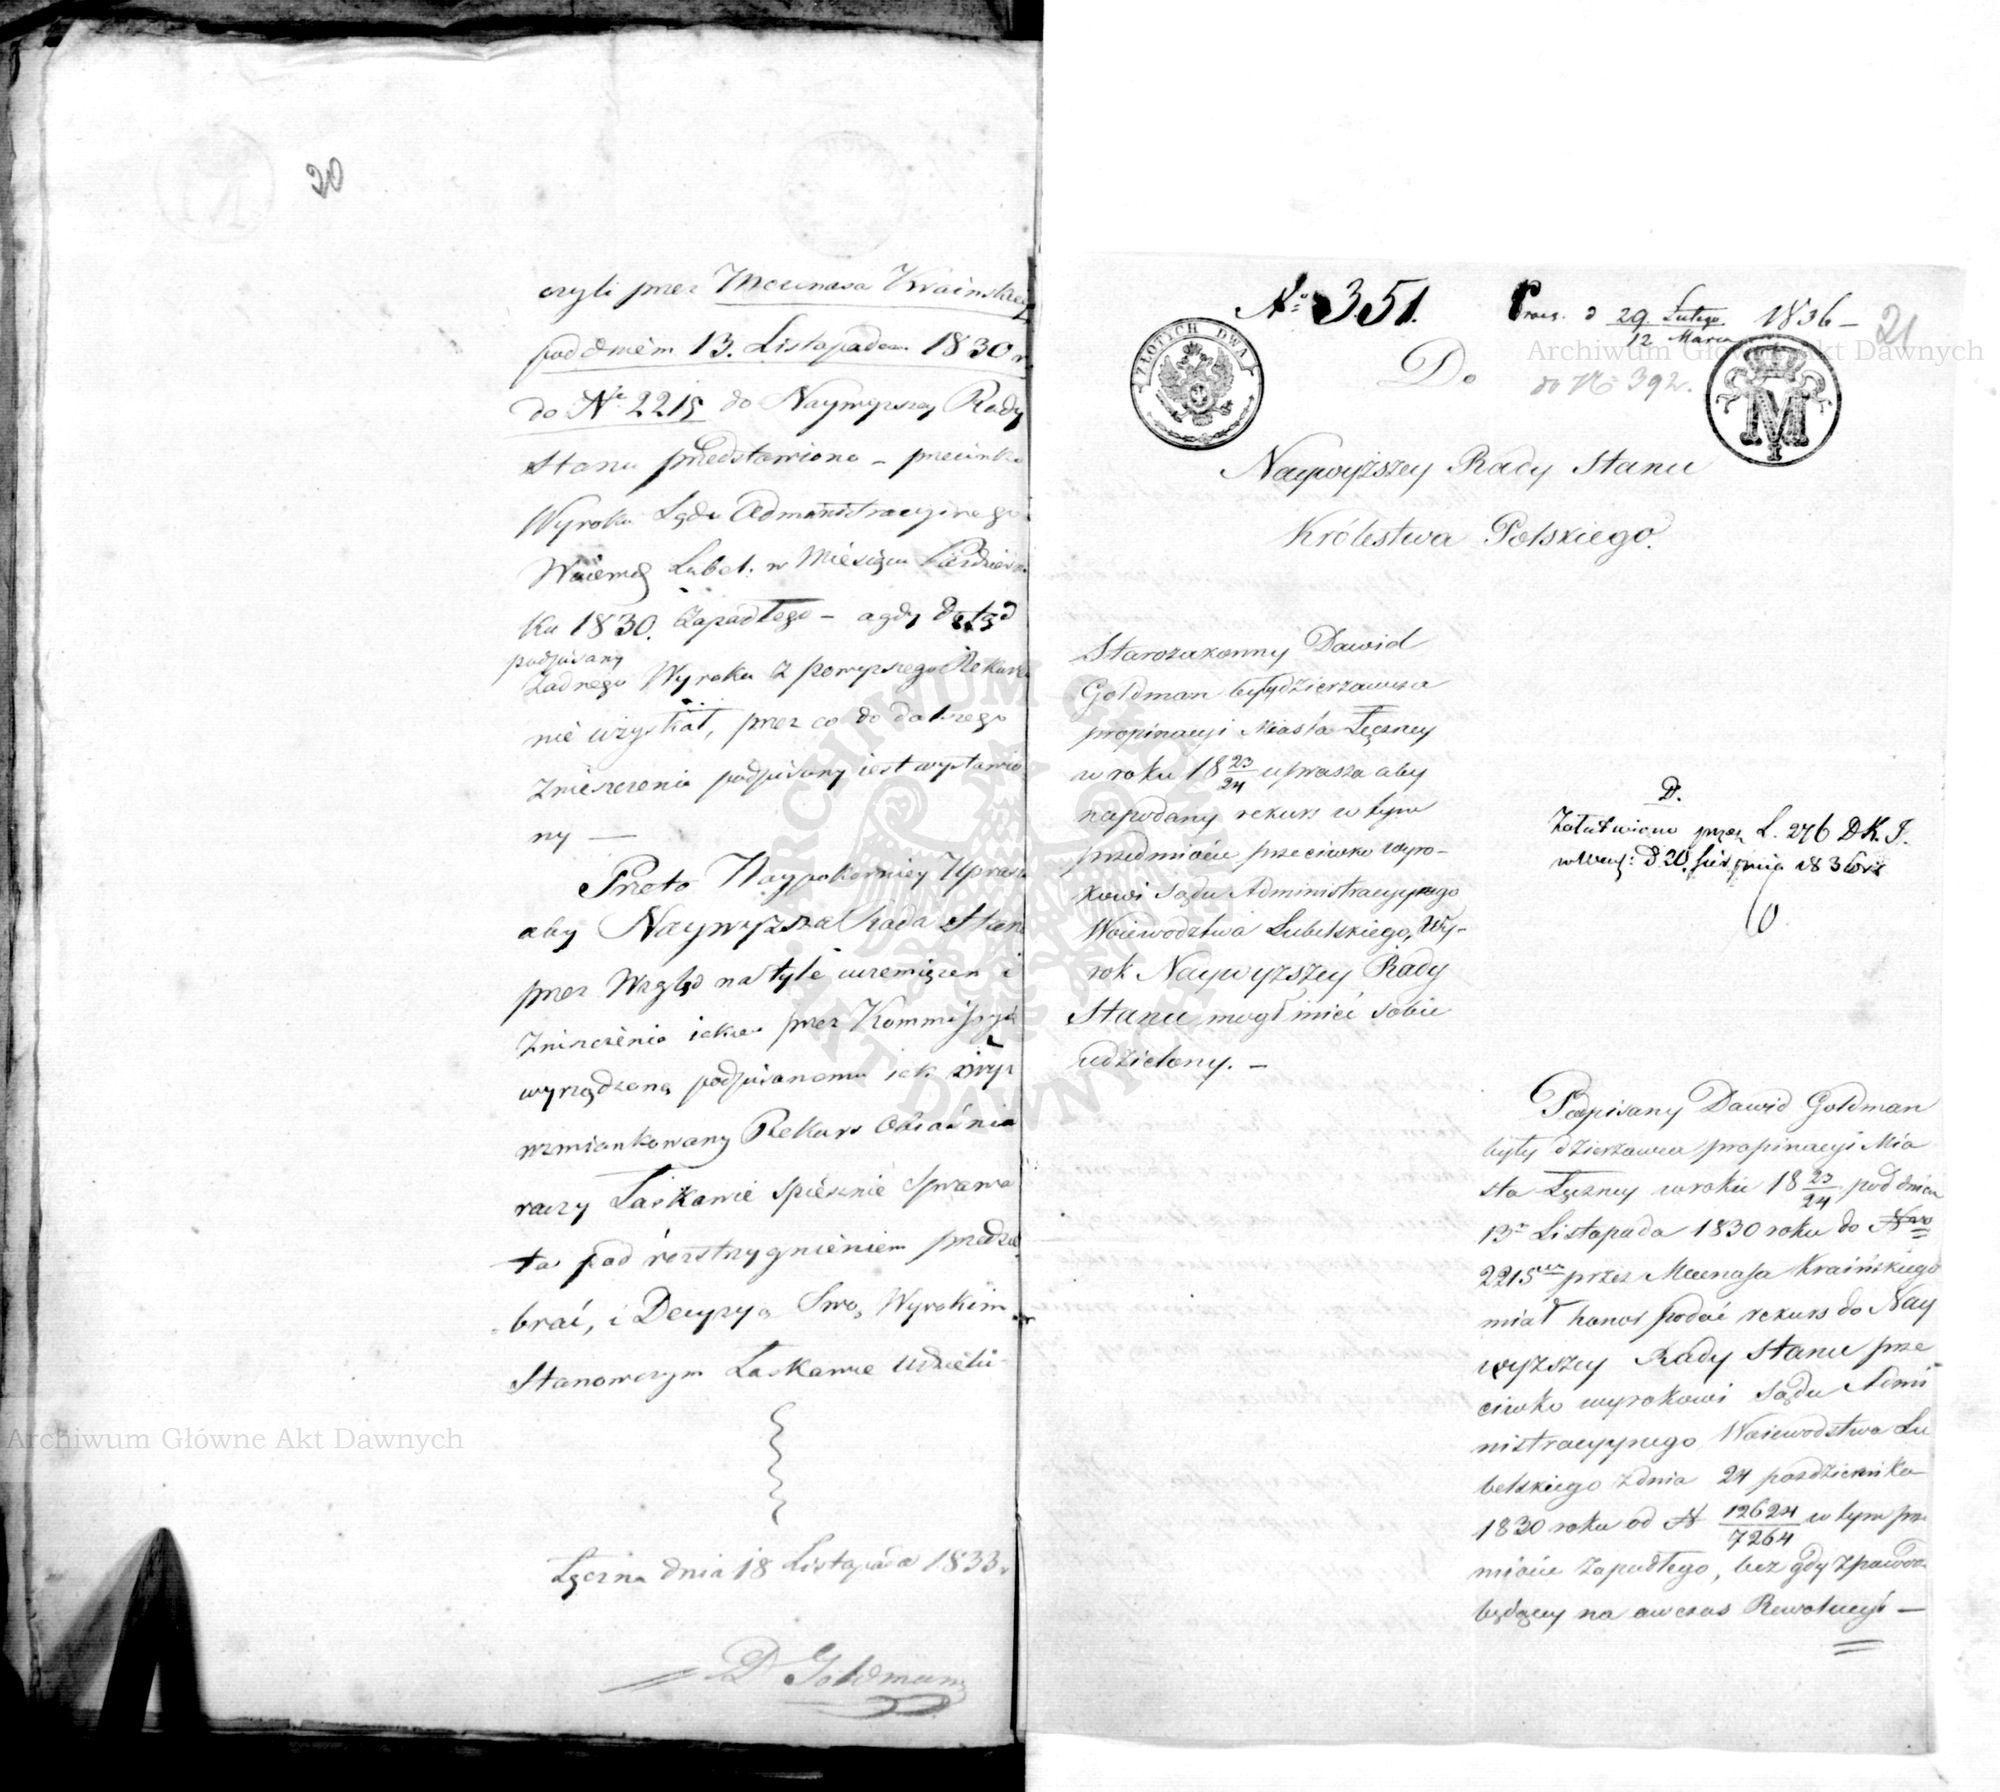 20
czyli przez Mecenasa Kraińskieg
pod dniem 13. Listopada 1830 r.
do Nr 2215 do Naywyzszey Rady
Stanu przedstawiono – przeciwko
Wyroku Sądu Administracyinego
Woiewdz Lubel. w Miesiącu Październi
ka 1830. Zapadłego – a gdy dotąd
podpisany
żadnego Wyroku z powyzszego Rekursu
nie uzyskał, przez co do dalszego
Zniszczenia podpisany iest wystawio
ny —
Przeto Naypokorniey Uprasza
aby Naywyzsza Rada Stanu
przez Wzgląd na tyle uciemięzen i
Zniszczenia iakie przez Kommissyą
wyrządzoną podpisanemu iak wyz
wzmiankowany Rekurs obiaśnia
raczy Łaskawie Spiesznie Sprawa
ta pod rozstrzygnieniem przedsię
brać, i Decyzyą Swą Wyrokiem
Stanowczym Łaskawie Udzielić
Łęczna dnia 18 Listopada 1833 r.
D Goldman
No 351.
Prez. d 29. Lutego / 12 Marca 1836 –
21
ZŁOTYCH DWA
Do
do No 392.
Naywyższey Rady Stanu
Królestwa Polskiego.
Starozakonny Dawid
Goldman były dzierzawca
propinacyi Miasta Łęczney
w roku 18 23/24 uprasza aby
na podany rekurs w tym
przedmiocie przeciwko wyro-
kowi Sądu Administracyjnego
Woiewodztwa Lubelskiego, Wy-
rok Naywyższey Rady
Stanu mógł mieć sobie
udzielony. –
D.
Załatwiono przez L. 276 D.K.J.
d 20 Sierpnia 1836 r
Podpisany Dawid Goldman
były dzierzawca propinacyi Mia
sta Łęczney w roku 18 23/24 pod dniem
13m Listopada 1830 roku do Nro
2215 przez Mecenasa Kraińskiego
miał honor podać rekurs do Nay
wyższey Rady Stanu prze
ciwko wyrokowi Sądu Admi
nistracyynego Woiewodztwa Lu
belskiego z dnia 24 pazdziernika
1830 roku od N 12624/7264 w tym prze
miocie zapadłego, lecz gdy z powodu
będącey na ow czas Rewolucyi –